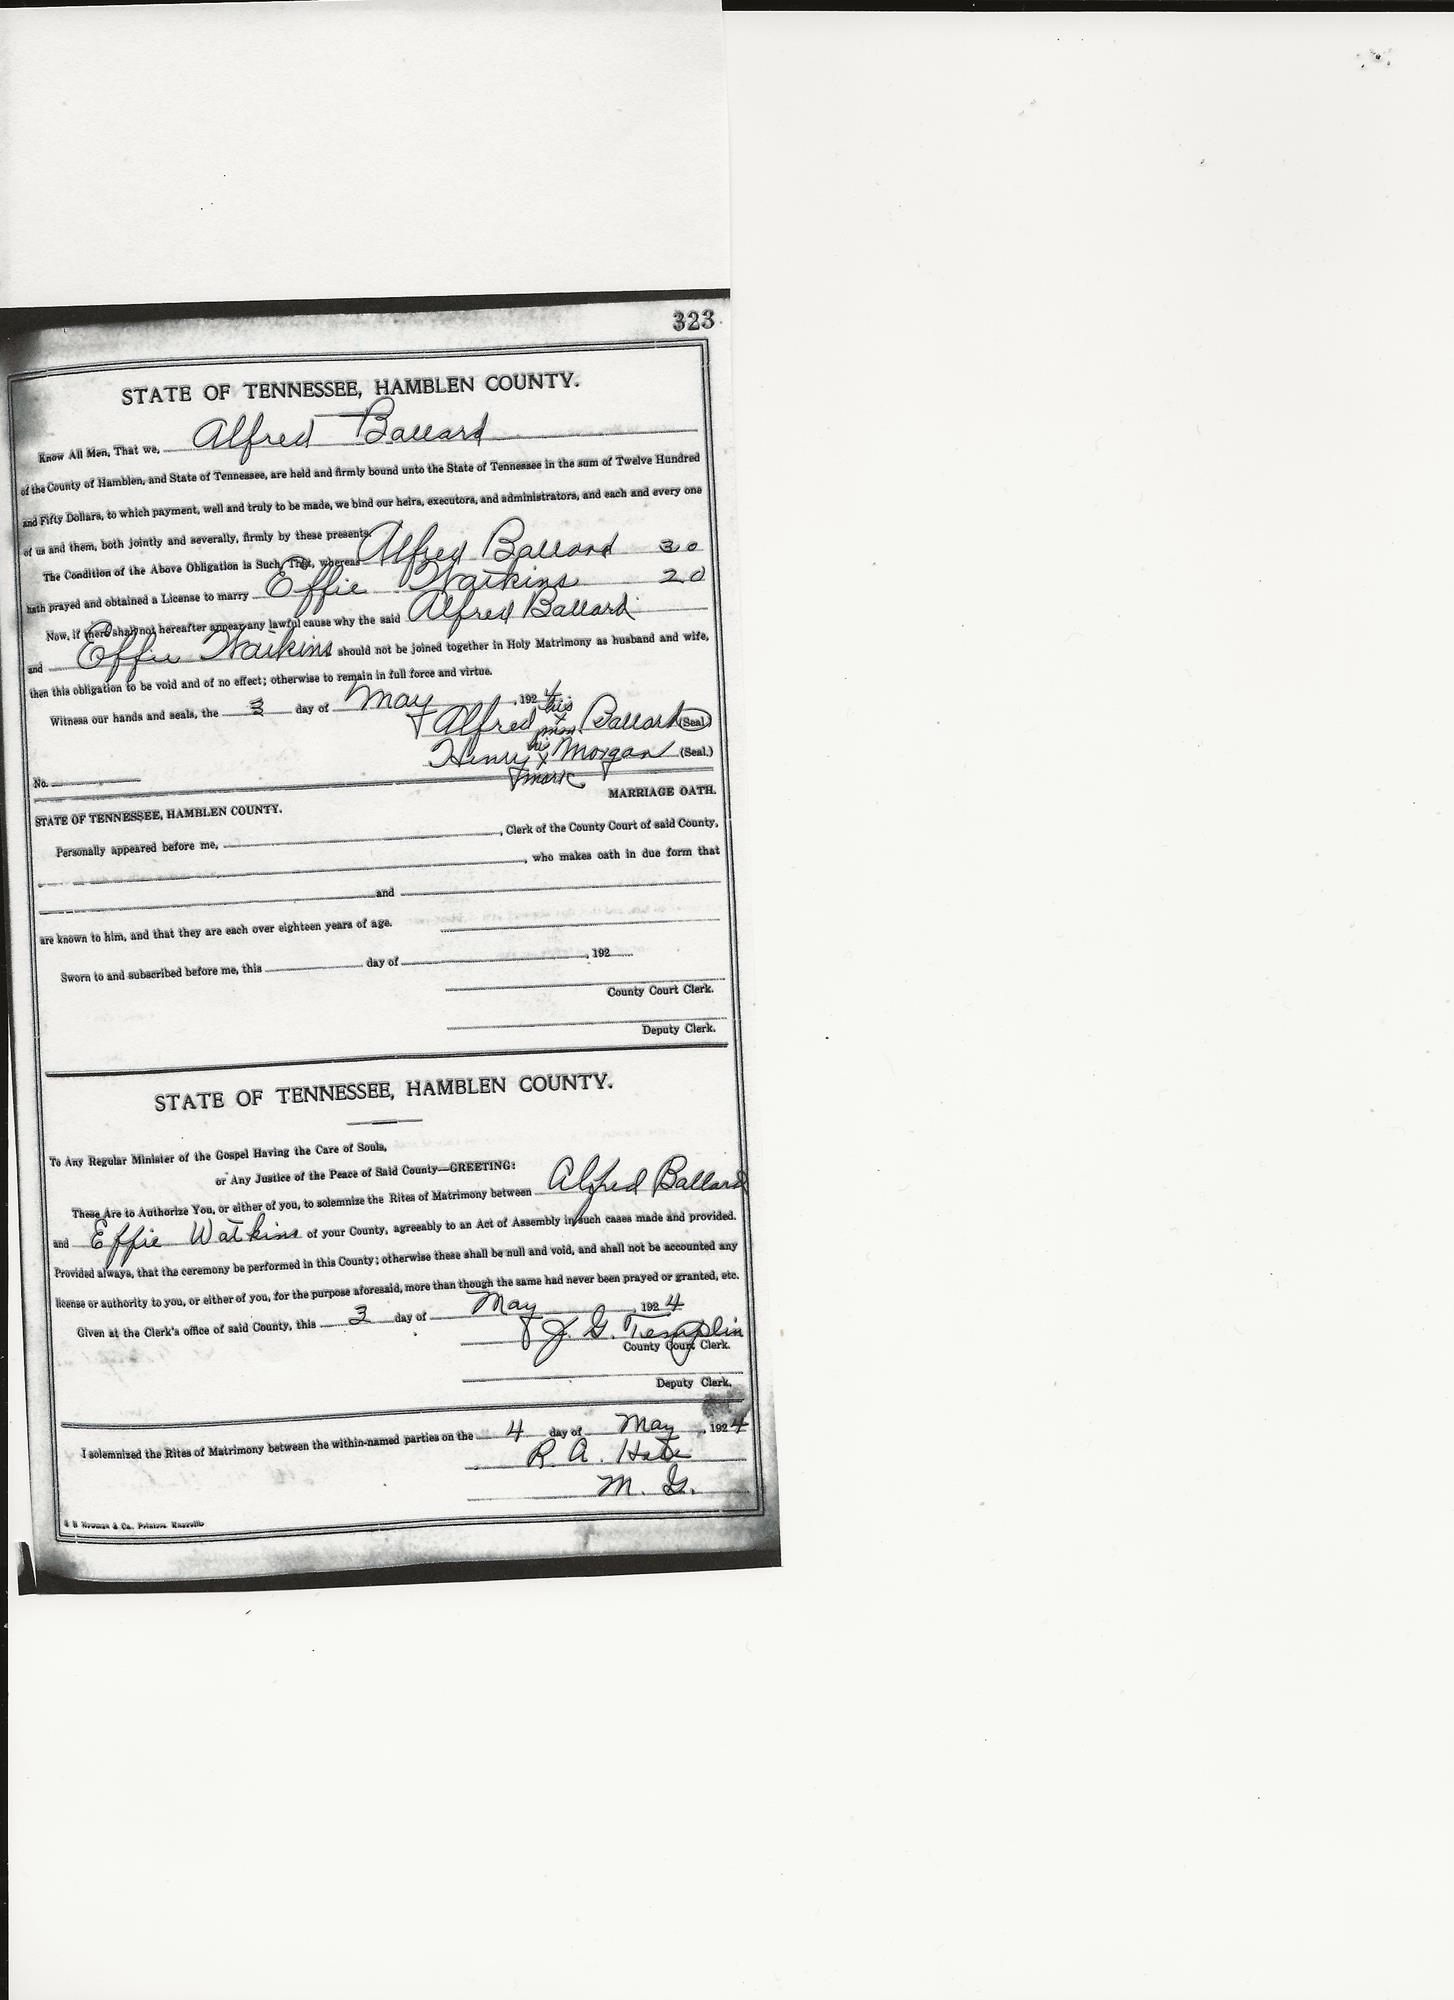 323
STATE OF TENNESSEE, HAMBLEN COUNTY.
Know All Men, That we, Alfred Ballard
of the County of Hamblen, and State of Tennessee, are held and firmly bound unto the State of Tennessee in the sum of Twelve Hundred
and Fifty Dollars, to which payment, well and truly to be made, we bind our heirs, executors, and administrators, and each and every one
of us and them, both jointly and severally, firmly by these presents.
The Condition of the Above Obligation is Such, That, whereas Alfred Ballard 30
hath prayed and obtained a License to marry Effie Watkins 20
Now, if there shall not hereafter appear any lawful cause why the said Alfred Ballard
and Effie Watkins should not be joined together in Holy Matrimony as husband and wife,
then this obligation to be void and of no effect; otherwise to remain in full force and virtue.
Witness our hands and seals, the 3 day of May, 1924
his
Alfred x Ballard (Seal)
his
Henry x Morgan (Seal.)
mark
No.
MARRIAGE OATH.
STATE OF TENNESSEE, HAMBLEN COUNTY.
Personally appeared before me, , Clerk of the County Court of said County,
, who makes oath in due form that
and
are known to him, and that they are each over eighteen years of age.
Sworn to and subscribed before me, this day of , 192
County Court Clerk.
Deputy Clerk.
STATE OF TENNESSEE, HAMBLEN COUNTY.
To Any Regular Minister of the Gospel Having the Care of Souls,
or Any Justice of the Peace of Said County—GREETING:
These Are to Authorize You, or either of you, to solemnize the Rites of Matrimony between Alfred Ballard
and Effie Watkins of your County, agreeably to an Act of Assembly in such cases made and provided.
Provided always, that the ceremony be performed in this County; otherwise these shall be null and void, and shall not be accounted any
license or authority to you, or either of you, for the purpose aforesaid, more than though the same had never been prayed or granted, etc.
Given at the Clerk's office of said County, this 3 day of May, 1924
J. G. Templin
County Court Clerk.
Deputy Clerk.
I solemnized the Rites of Matrimony between the within-named parties on the 4 day of May, 1924
R. A. Hale
M. G.
Newman & Co., Printers, Knoxville